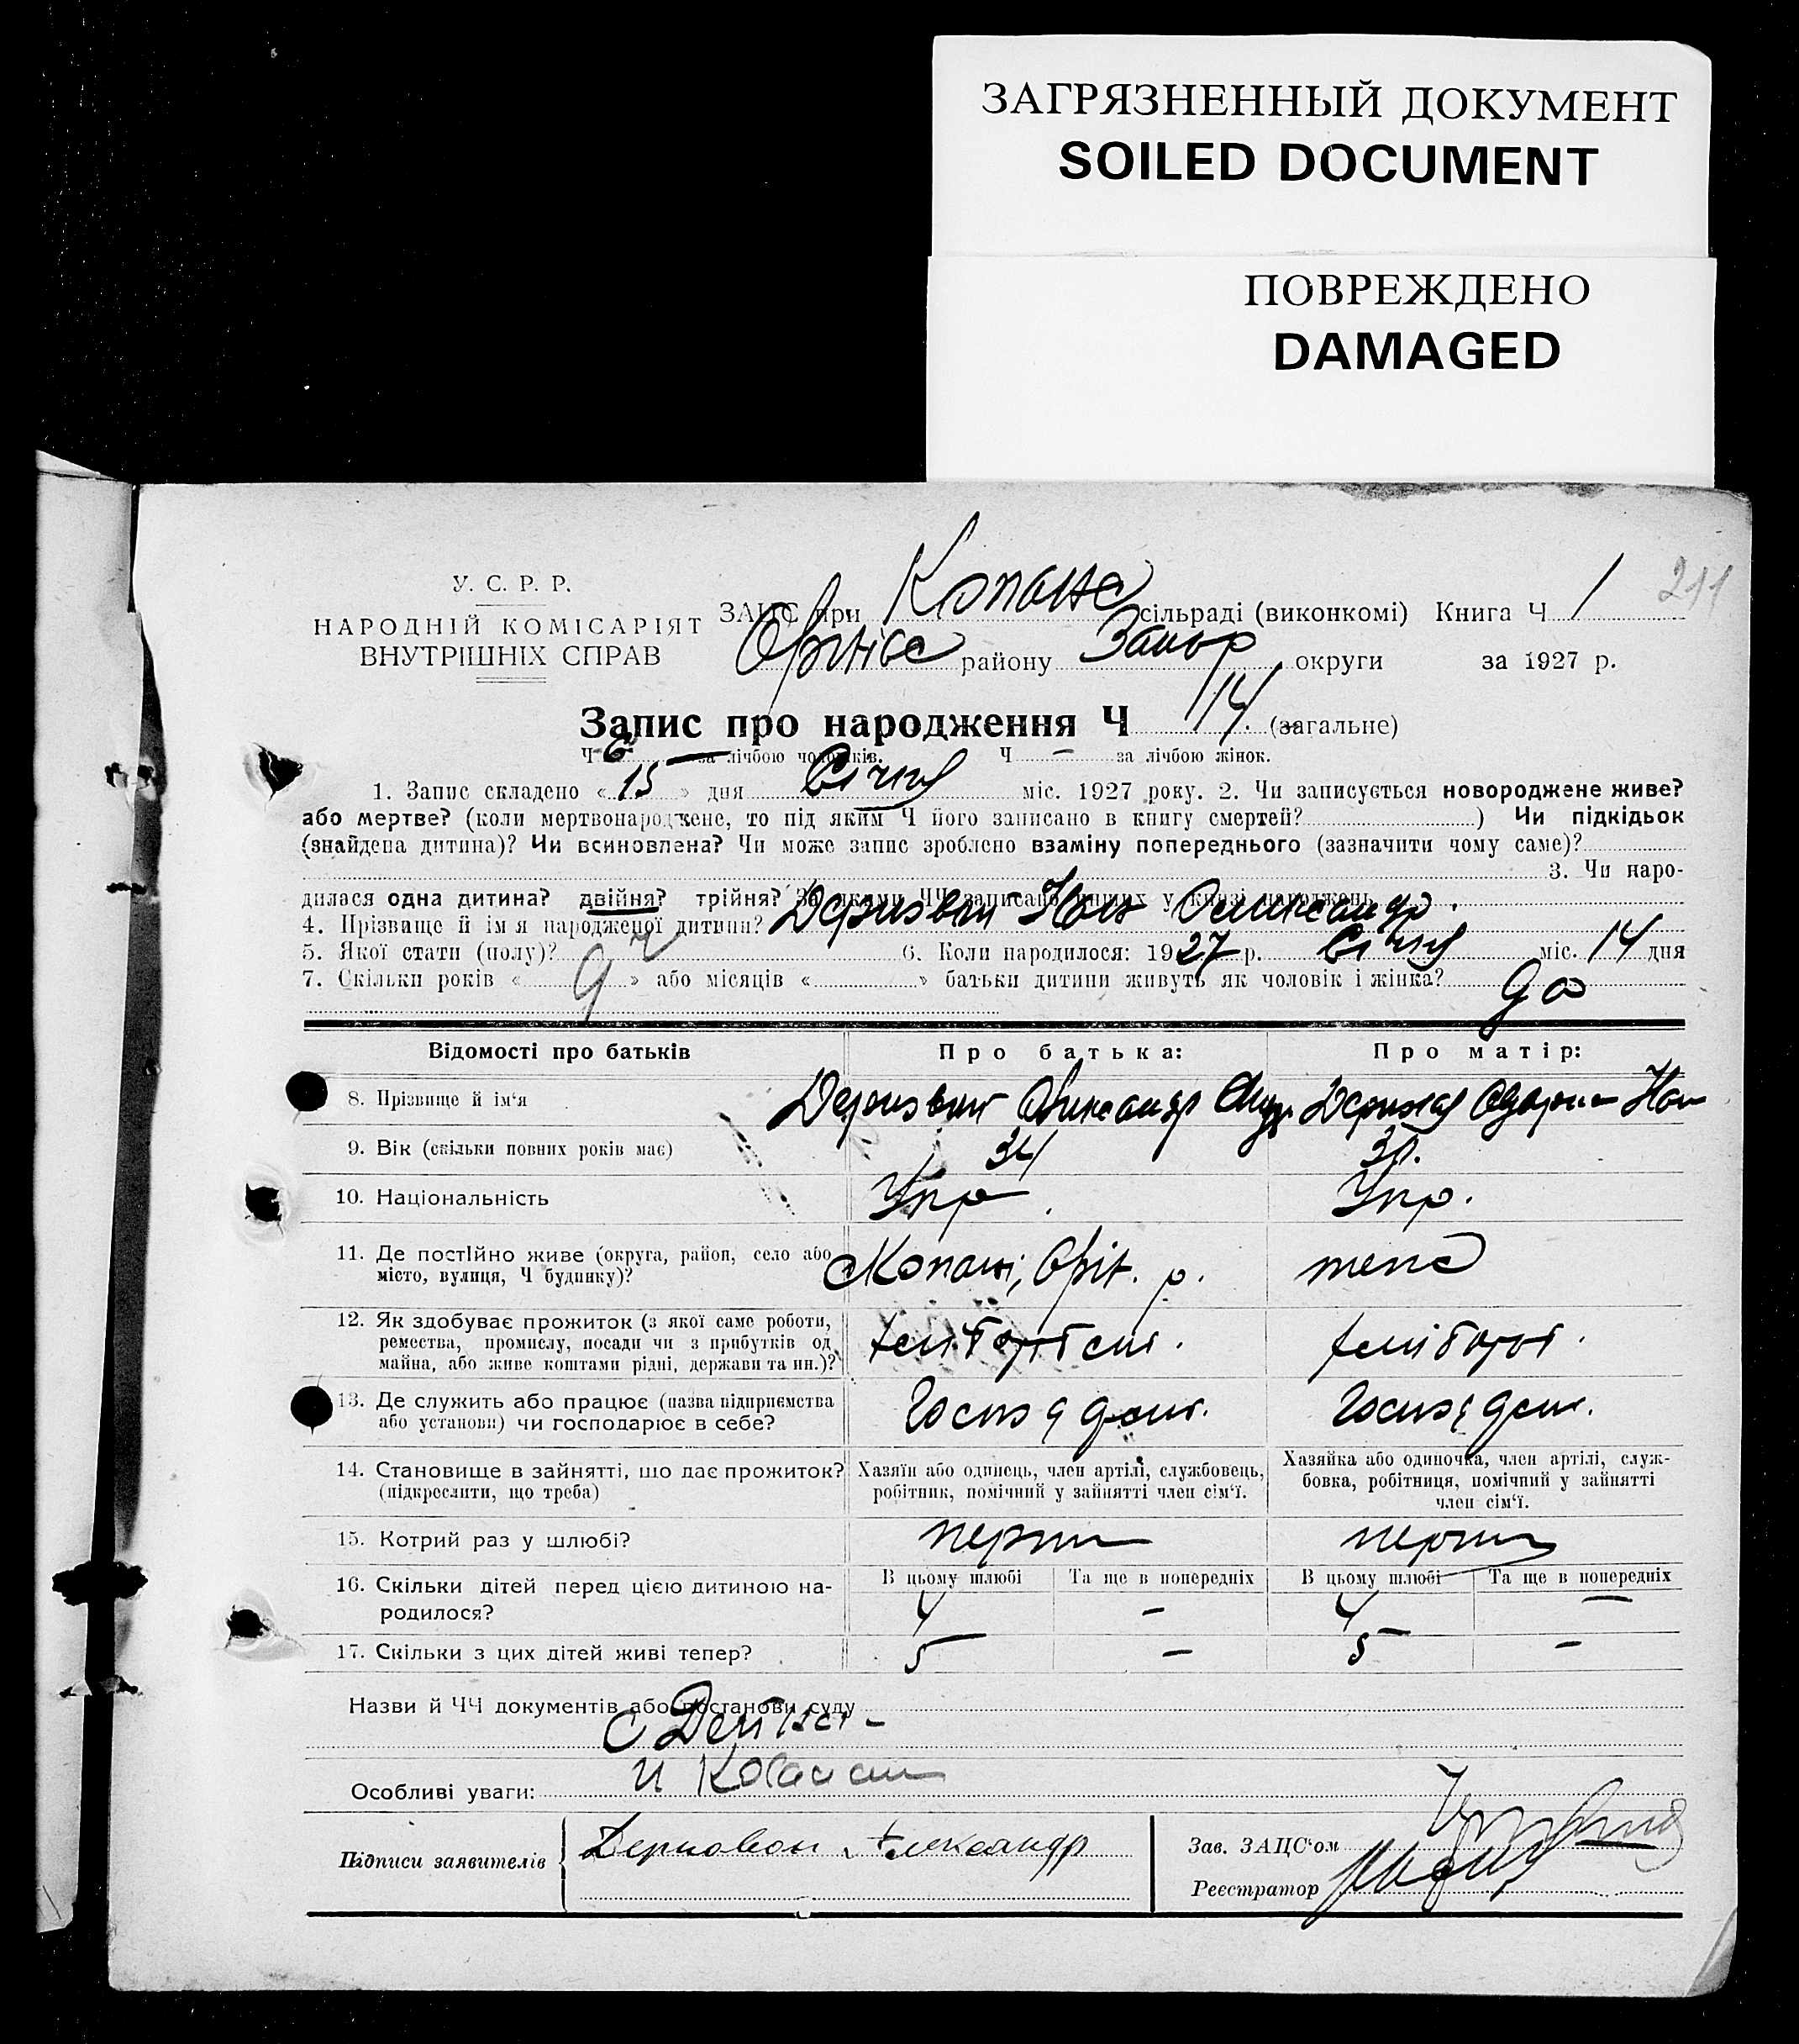 ЗАГРЯЗНЕННЫЙ ДОКУМЕНТ
SOILED DOCUMENT
ПОВРЕЖДЕНО
DAMAGED
211
У. С. Р. Р.
НАРОДНІЙ КОМІСАРІЯТ
ВНУТРІШНІХ СПРАВ
ЗАЦС при Копанс сільраді (виконкомі) Книга Ч 1
Оріхівс району Запор округи за 1927 р.
Запис про народження Ч 14 (загальне)
Ч 6 за лічбою чоловіків. Ч — за лічбою жінок.
1. Запис складено « 15 » дня Січня міс. 1927 року. 2. Чи записується новороджене живе?
або мертве? (коли мертвонароджене, то під яким Ч його записано в книгу смертей? ) Чи підкідьок
(знайдена дитина)? Чи всиновлена? Чи може запис зроблено взаміну попереднього (зазначити чому саме)?
3. Чи наро-
дилася одна дитина? двійня? трійня? За якими ЧЧ записано инших у книзі народжень
4. Прізвище й ім'я народженої дитини?
5. Якої стати (полу)? ч 6. Коли народилося: 1927 р. Січня міс. 14 дня
7. Скільки років « 9 » або місяців « » батьки дитини живуть як чоловік і жінка? да
Відомості про батьків Про батька: Про матір:
8. Прізвище й ім'я
9. Вік (скільки повних років має) 34 30.
10. Національність Укр Укр.
11. Де постійно живе (округа, район, село або Копані, Оріх. р.
місто, вулиця, Ч будинку)?
12. Як здобуває прожиток (з якої саме роботи, хліборобст. хлібороб.
ремества, промислу, посади чи з прибутків од
майна, або живе коштами рідні, держави та ин.)?
13. Де служить або працює (назва підприємства
або установи) чи господарює в себе?
14. Становище в зайнятті, що дає прожиток? Хазяїн або одинець, член артілі, службовець, Хазяйка або одиночка, член артілі, служ-
(підкреслити, що треба) робітник, помічний у зайнятті член сім'ї. бовка, робітниця, помічний у зайнятті
член сім'ї.
15. Котрий раз у шлюбі? перши перши
16. Скільки дітей перед цією дитиною на- В цьому шлюбі Та ще в попередніх В цьому шлюбі Та ще в попередніх
родилося? 4 — 4 —
17. Скільки з цих дітей живі тепер? 5 — 5 —
Назви й ЧЧ документів або постанови суду
Особливі уваги:
Підписи заявителів Александр Зав. ЗАЦС'ом
Реєстратор